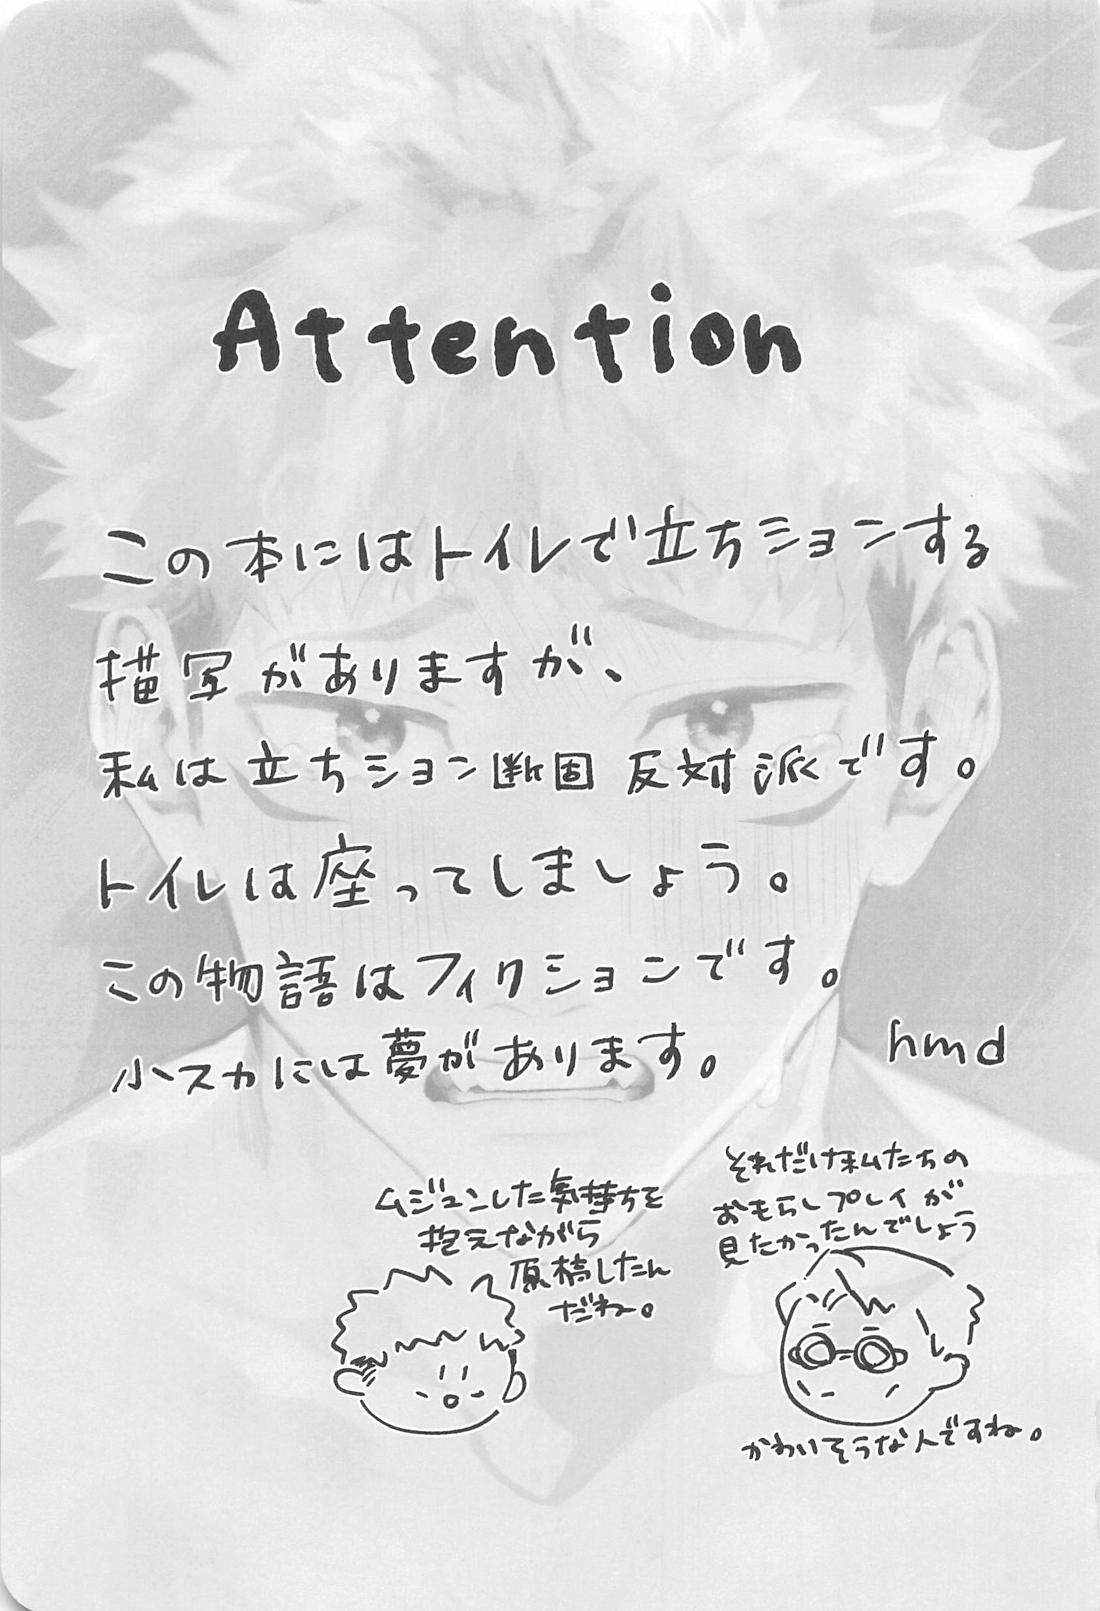 Attention
この本にはトイレで立ちションする
描写がありますが、
私は立ちション断固反対派です。
トイレは座ってしましょう。
この物語はフィクションです。
小スカには夢があります。
hmd
ムジュンした気持ちを
抱えながら
原稿したん
だね。
それだけ私たちの
おもらしプレイが
見たかったんでしょう
かわいそうな人ですね。